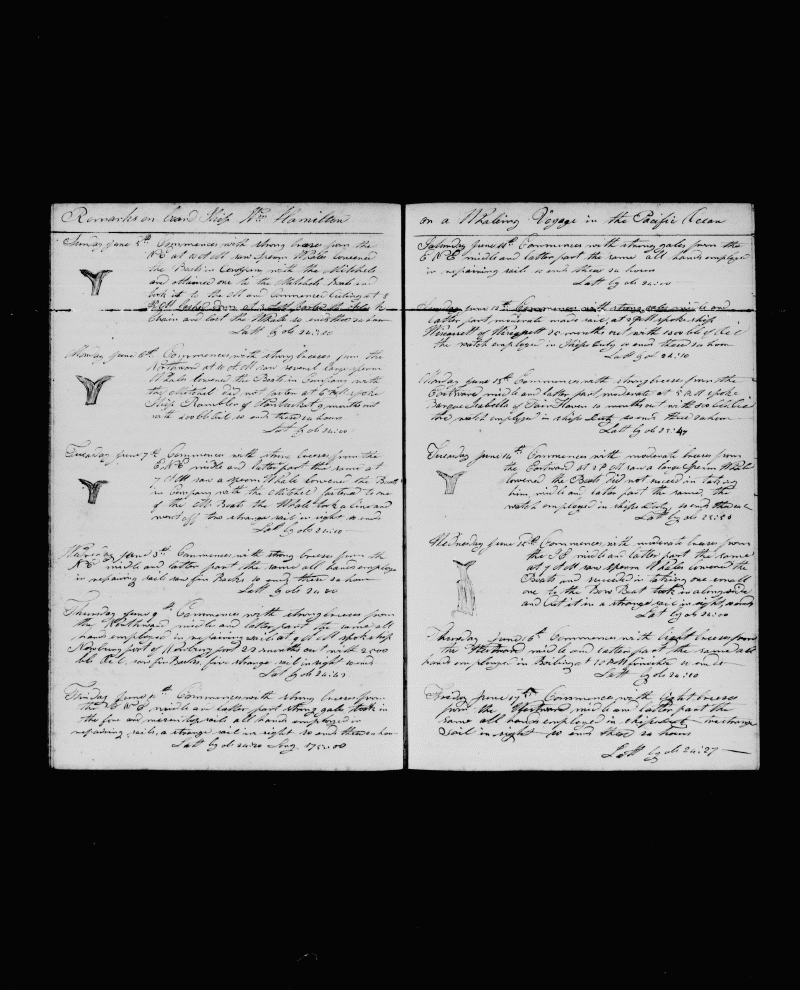 Remarks on board Ship Wm Hamilton
Sunday June 5th Commences with strong breeses from the
NE at 10 AM saw sperm Whales lowered
the Boats in Company with the Mitchels
and attained one to the Mitchels Boats and
took it to the and Commenced Cuting at 8
PM the
Chain and lost the Whale so ends these 24 hours
Latt by ob 24:20
Monday June 6th Commences with strong breeses from the
Northward at 10 AM saw several large sperm
Whales lowered the Boats in Company with
the Mitchel did not fasten at 6 PM spoke
Ship Rambler of Nantucket 9 months out
with 200 bbl oil so ends these 24 hours
Latt by ob 24:20
Tuesday June 7th Commences with strong breeses from the
ENE midle and latter part the same at
7 AM saw a sperm Whale lowered the Boats
in Company with the Mitchel fastened to one
of the Boats the Whale took a line and
went off two strange sail in sight so ends
Latt by ob 24:10
Commences with strong breeses from the
NE midle and latter part the same all hands employed
in repairing sail saw fin Backs so ends these 24 hours
Latt by ob 24:00
Thursday June 9 th Commences with strong breeses from
the Northward midle and latter part the same all
hands employed in repairing sail at 9 AM spoke ship
Newbury port of Newbury port 23 months out with 2000
bbl Oil saw fin Backs, five strange sail in sight so ends
Latt by ob 24:
Friday June 10th Commences with strong breeses from
the NE midle and latter part strong gales took in
the fore and mizentop sails all hands employed in
repairing sails, a strange sail in sight so ends these 24 hours
Latt by ob 24:20 Long 173:00
on a Whaleing Voyage in the Pacific Ocean
Saturday June 11th Commences with strong gales from the
ENE midle and latter part the same all hands employed
in repairing sail so ends these 24 hours
Latt by ob 24:00
Sunday June 12th Commences with strong gales midle and
latter part moderate made sail, at 3 PM spoke ship
of months out with 1200 bbl of Oil
the watch employed in Ships Duty so ends these 24 hours
Latt by ob 24:10
Monday June 13th Commences with strong breeses from the
Eastward midle and latter part moderate at 5 PM spoke
Barque Isabella of Fair Haven 10 months out with
the watch employed in ships duty so ends these 24 hours
Latt by ob 23:47
Tuesday June 14th Commences with moderate breeses from
the Eastward at 2 PM saw a large Sperm Whale
lowered the Boats Did not succed in taking
him midle and latter part the same, the
watch employed in ships Duty so ends these 24
Latt by ob 23:50
Wednesday June 15th Commences with moderate breeses from
the SE midle and latter part the same
at 9 AM saw sperm Whales lowered the
Boats and succeded in taking one small
one to the Bow Boat took in alongside
and Cut it in a strange sail in sight, so ends
Latt by ob 24:00
Thursday June 16th Commences with light breeses from
the Westward midle and latter part the same all
hands employed in Boiling at 12 PM finishd so ends
Latt by ob 24:10
Friday June 17th Commences with light breeses
from the Westward, midle and latter part the
same all hands employed in shipsduty
sail in sight so ends these 24 hours
Latt by ob 24:27